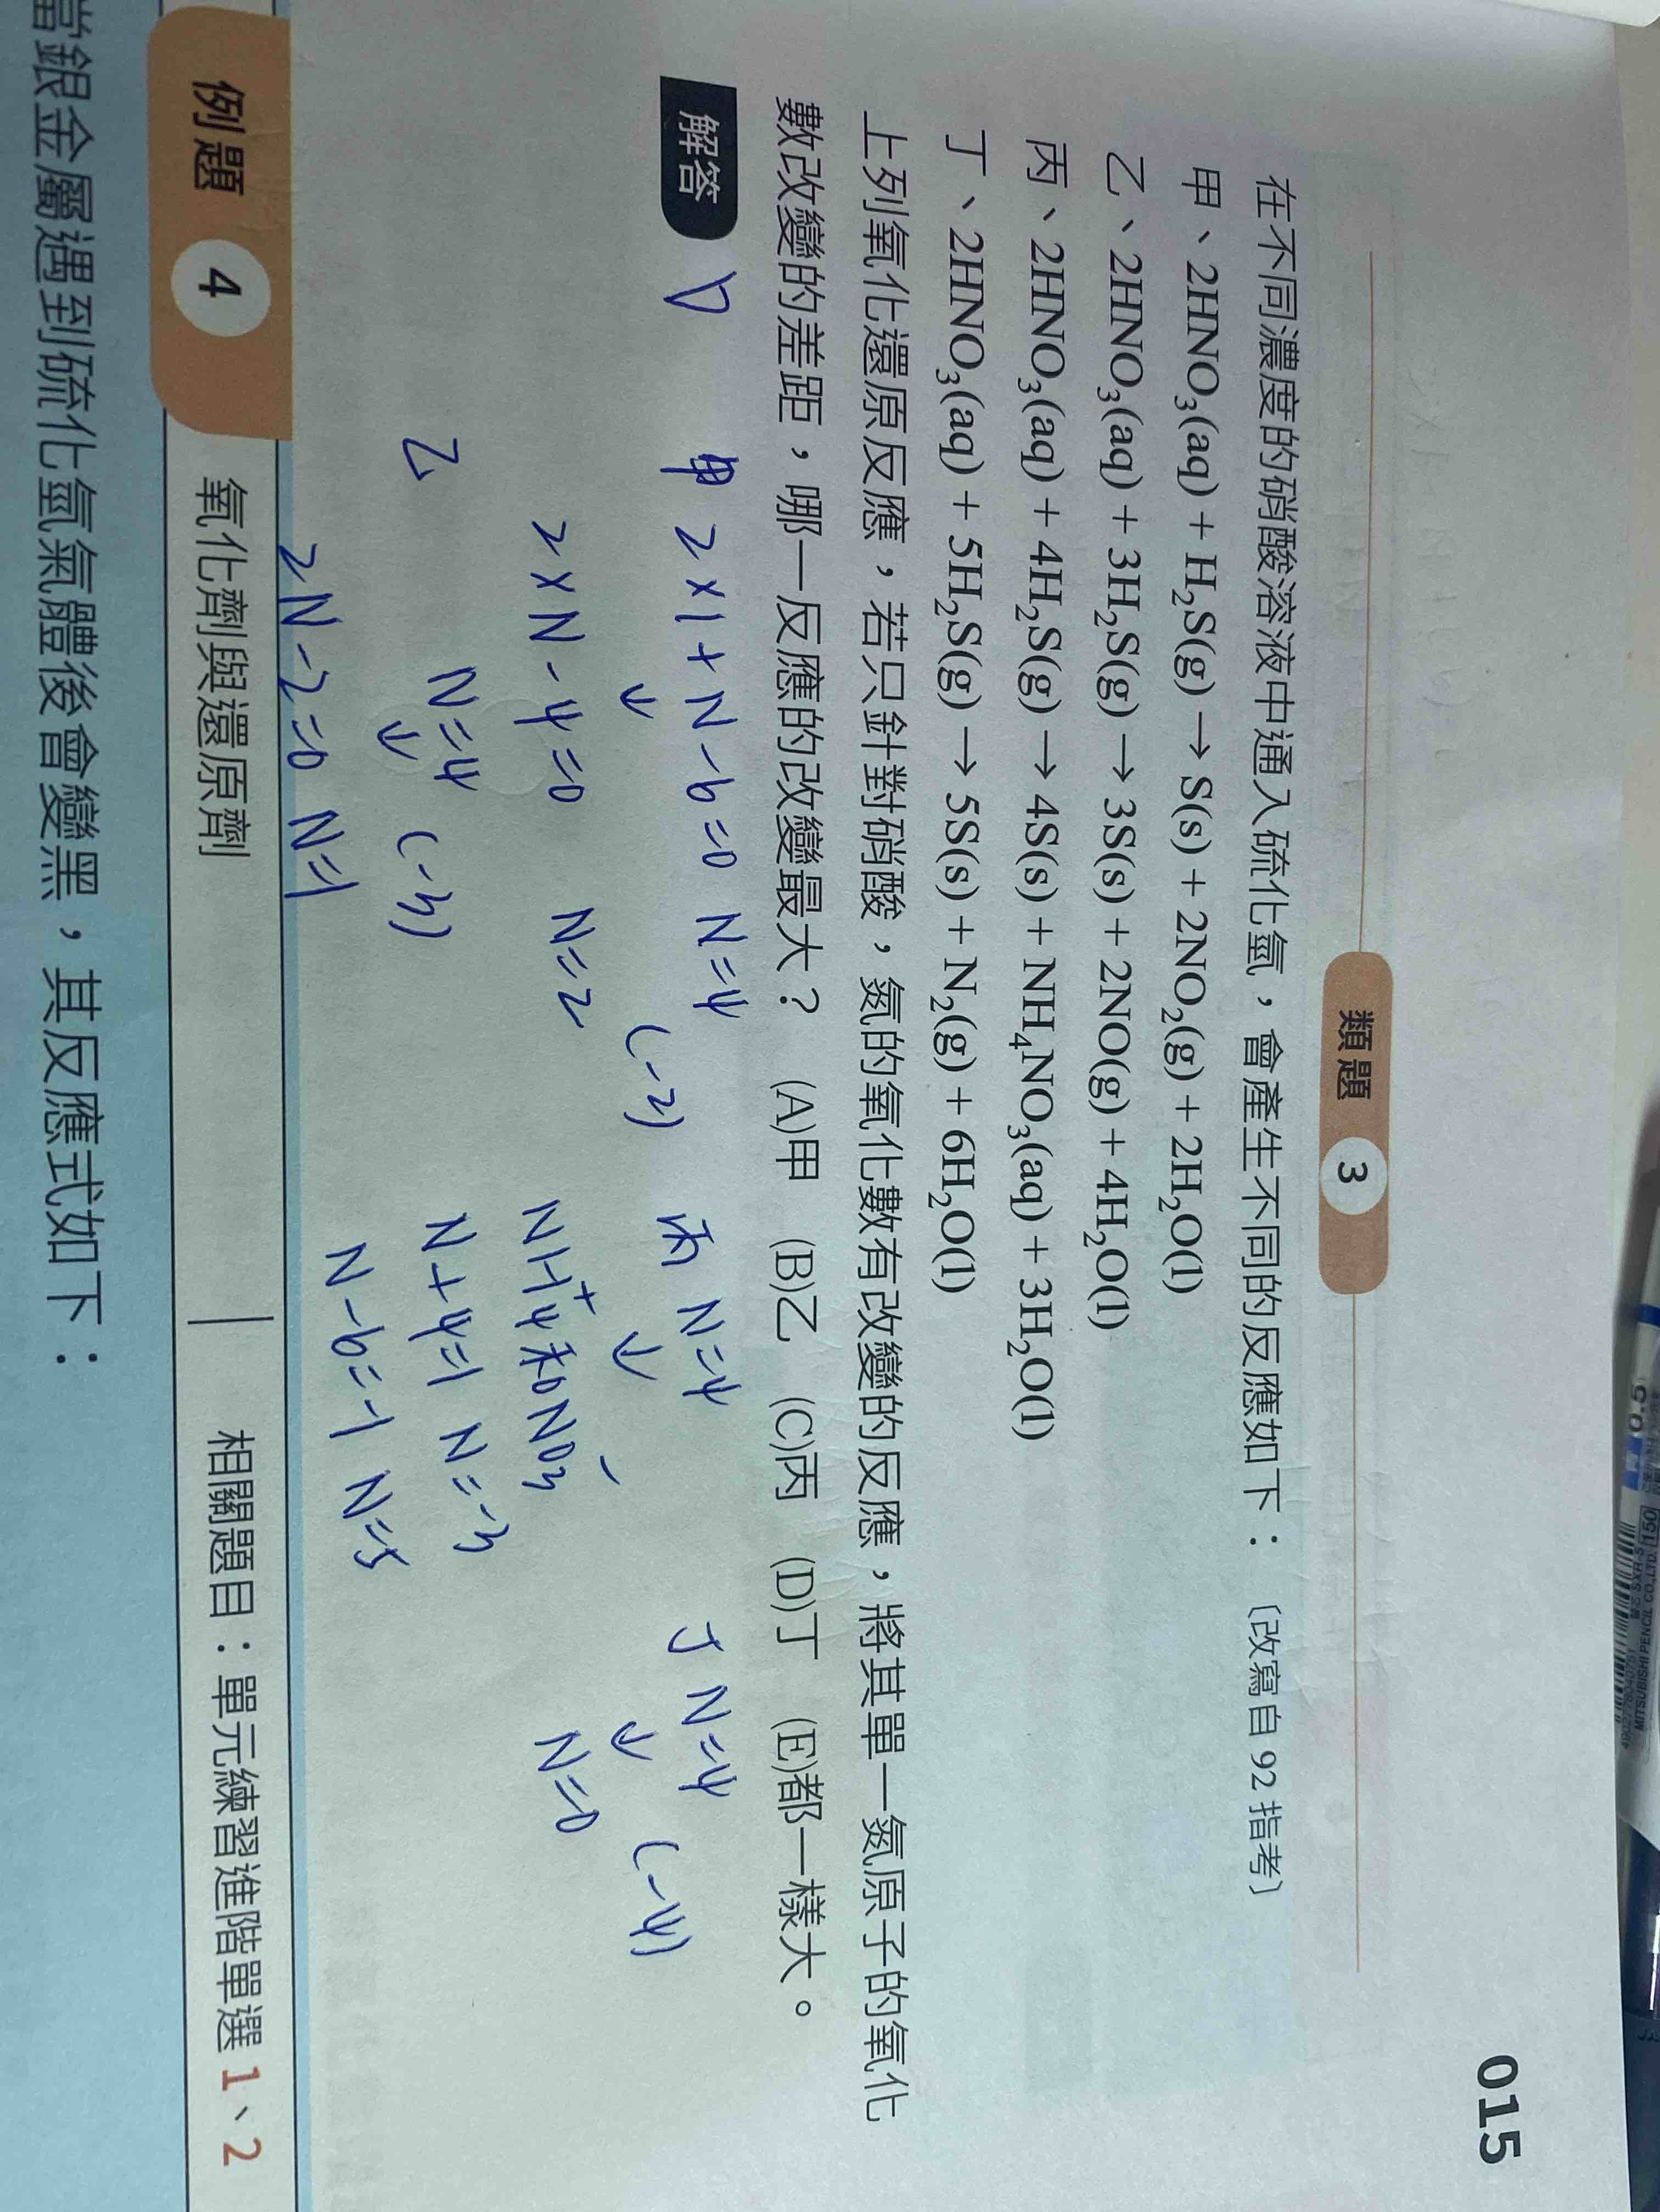 015
類題 3
在不同濃度的硝酸溶液中通入硫化氫，會產生不同的反應如下：〔改寫自 92 指考〕
甲、2HNO₃(aq) + H₂S(g) → S(s) + 2NO₂(g) + 2H₂O(l)
乙、2HNO₃(aq) + 3H₂S(g) → 3S(s) + 2NO(g) + 4H₂O(l)
丙、2HNO₃(aq) + 4H₂S(g) → 4S(s) + NH₄NO₃(aq) + 3H₂O(l)
丁、2HNO₃(aq) + 5H₂S(g) → 5S(s) + N₂(g) + 6H₂O(l)
上列氧化還原反應，若只針對硝酸，氮的氧化數有改變的反應，將其單一氮原子的氧化
數改變的差距，哪一反應的改變最大？ (A)甲 (B)乙 (C)丙 (D)丁 (E)都一樣大。
解答 D
甲 2×1+N-6=0 N=4
↓ (-2)
2×N-4=0 N=2
乙 N=4
↓ (-3)
2N-2=0 N=1
丙 N=4
↓
NH4⁺和NO3⁻
N+4=1 N=-3
N-6=-1 N=5
丁 N=4
↓ (-4)
N=0
例題 4 氧化劑與還原劑 相關題目：單元練習進階單選 1、2
當銀金屬遇到硫化氫氣體後會變黑，其反應式如下：
0.5
MITSUBISHI PENCIL CO.,LTD.